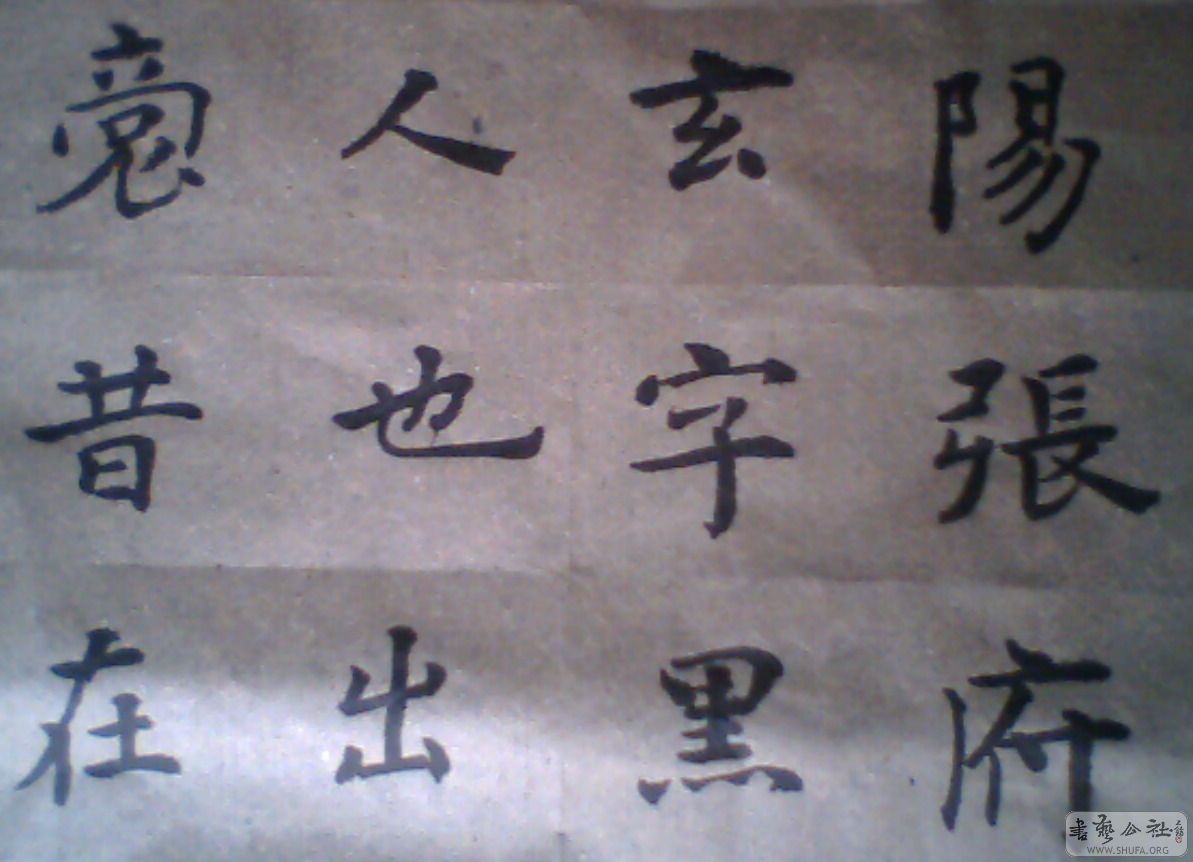 陽張府
玄字黑
人也出
裔昔在
書藝公社
WWW.SHUFA.ORG